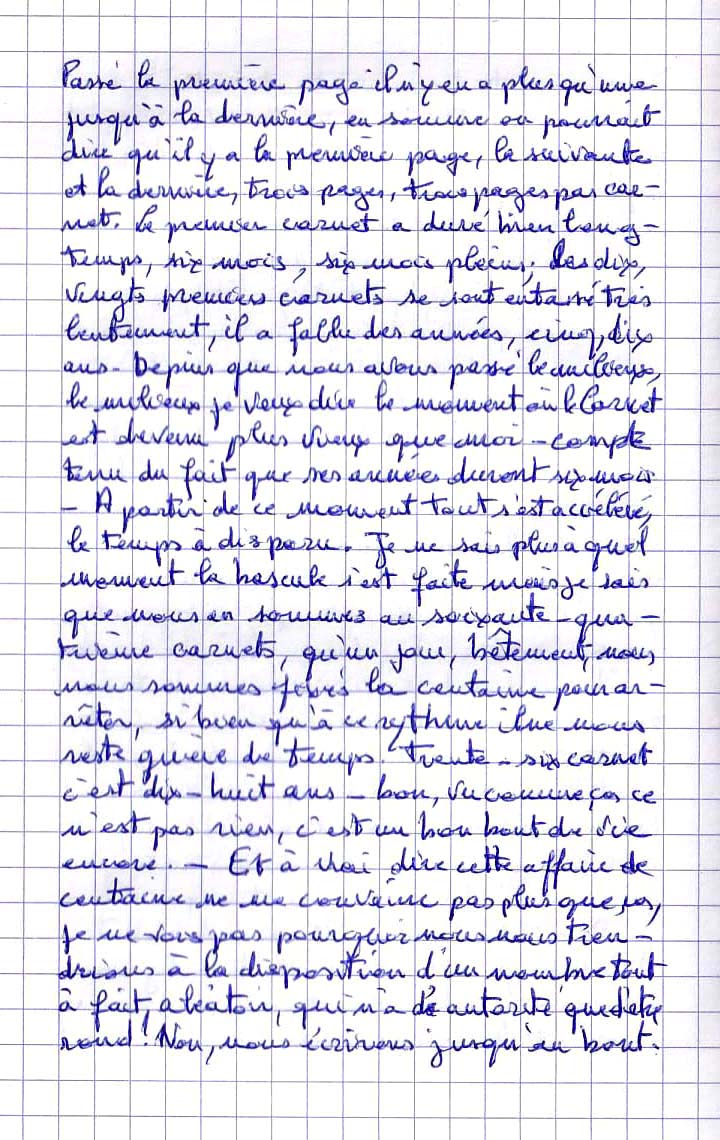 Passé la première page il n'y en a plus qu'une
jusqu'à la dernière, en somme on pourrait
dire qu'il y a la première page, la suivante
et la dernière, trois pages, trois pages par car-
net. Le premier carnet a duré bien long-
temps, six mois, six mois pleins; Les dix,
vingts premiers carnets se sont entassé très
lentement, il a fallu des années, cinq, dix
ans - Depuis que nous avons passé le milieux,
le milieux je veux dire le moment où le Carnet
est devenu plus vieux que moi - compte
tenu du fait que ses années durent six mois
- A partir de ce moment tout s'est accéléré,
le temps à disparu. Je ne sais plus à quel
moment la bascule s'est faite mais je sais
que nous en sommes au soixante-qua-
trième carnets, qu'un jour, bêtement, nous
nous sommes fixés la centaine pour ar-
rêter, si bien qu'à ce rythme il ne nous
reste guère de temps. Trente-six carnet
c'est dix-huit ans - bon, vu comme ça ce
n'est pas rien, c'est un bon bout de vie
encore. - Et à vrai dire cette affaire de
centaine ne me convainc pas plus que ça,
je ne vois pas pourquoi nous nous tien-
drions à la disposition d'un nombre tout
à fait, aléatoir, qui n'a d'autorité que d'être
rond! Non, nous écrirons jusqu'au bout.